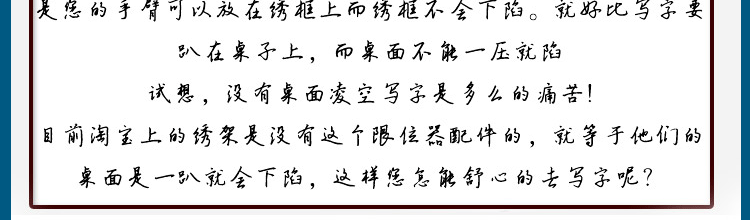 是您的手臂可以放在绣框上而绣框不会下陷。就好比写字要
趴在桌子上，而桌面不能一压就陷
试想，没有桌面凌空写字是多么的痛苦!
目前淘宝上的绣架是没有这个限位器配件的，就等于他们的
桌面是一趴就会下陷，这样您怎能舒心的去写字呢?